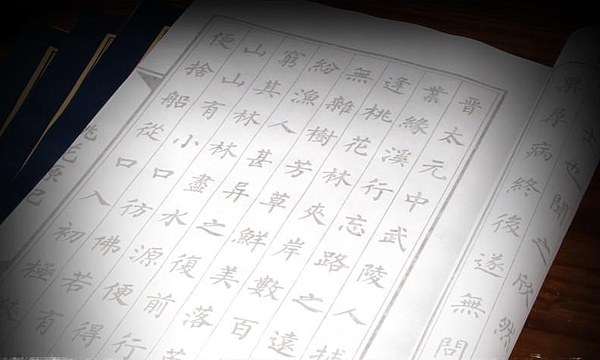 也聞之欣然
果尋病終後遂無問
晋太元中武陵人捕
業緣溪行忘路之遠
逢桃花林夾岸數百
無雜樹芳草鮮美落
紛漁人甚异之復前行
窮其林林盡水源便得
山山有小口彷佛若有
便捨船從口入初極狹
桃花源記